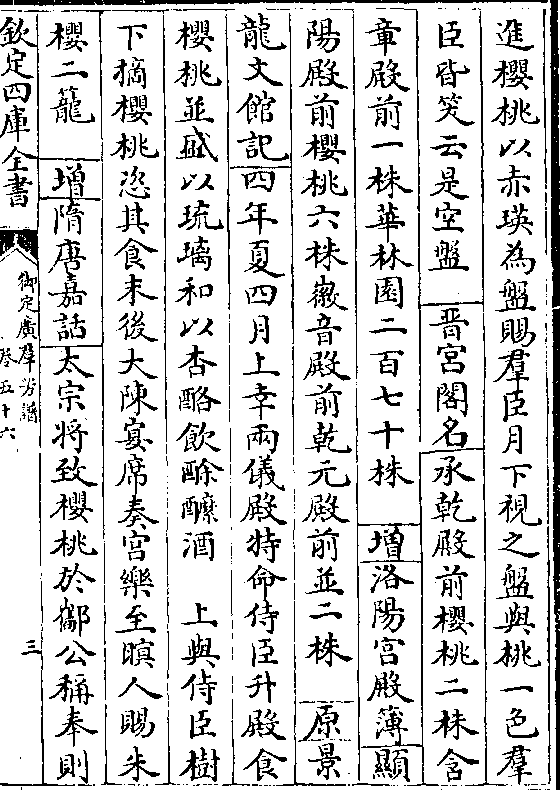 進櫻桃以赤瑛為盤賜羣臣月下視之盤與桃一色羣
臣皆笑云是空盤　晋宮閣名承乾殿前櫻桃二株含
章殿前一株華林園二百七十株　增洛陽宮殿簿顯
陽殿前櫻桃六株徽音殿前乾元殿前並二株　原景
龍文館記四年夏四月上幸兩儀殿特命侍臣升殿食
櫻桃並盛以琉璃和以杏酪飲酴醾酒　上與侍臣樹
下摘櫻桃恣其食末後大陳宴席奏宮樂至暝人賜朱
櫻二籠　增隋唐嘉話太宗將致櫻桃於酅公稱奉則
欽定四庫全書
御定廣羣芳譜
卷五十六
三